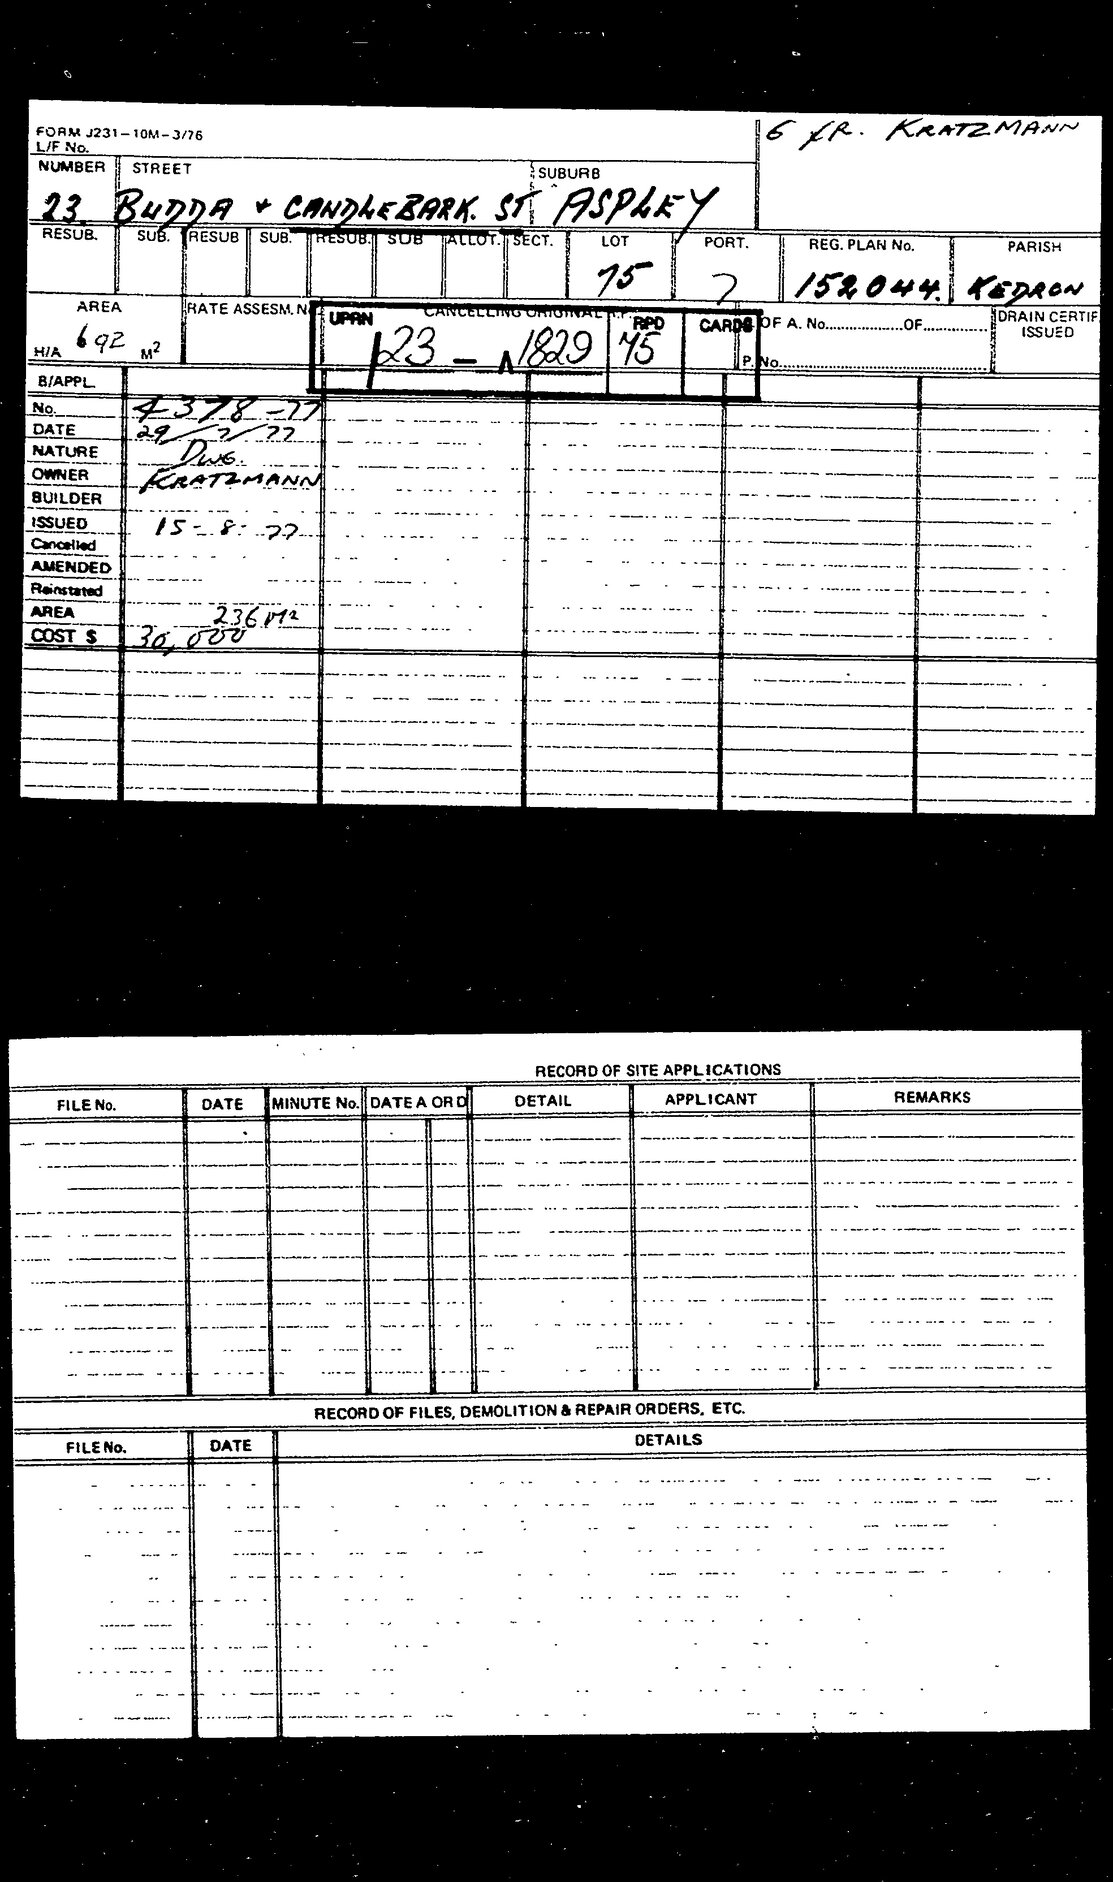 FORM J231-10M-3/76
L/F No.
6 fR. KRATZMANN
NUMBER STREET SUBURB
23. BUDDA + CANDLEBARK. ST ASPLEY
RESUB. SUB. RESUB SUB. RESUB. SUB ALLOT. SECT. LOT PORT. REG. PLAN No. PARISH
75 7 152044. KEDRON
AREA RATE ASSESM. N CANCELLING ORIGINAL OF A. No. OF DRAIN CERTIF. ISSUED
UPRN RPD CARDS
692 H/A M2 123 - 1829 75 P. No.
B/APPL.
No. 4378-77
DATE 29/7/77
NATURE DWG.
OWNER KRATZMANN
BUILDER
ISSUED 15-8-77
Cancelled
AMENDED
Reinstated
AREA 236 M2
COST $ 30,000
RECORD OF SITE APPLICATIONS
FILE No. DATE MINUTE No. DATE A OR D DETAIL APPLICANT REMARKS
RECORD OF FILES, DEMOLITION & REPAIR ORDERS, ETC.
FILE No. DATE DETAILS